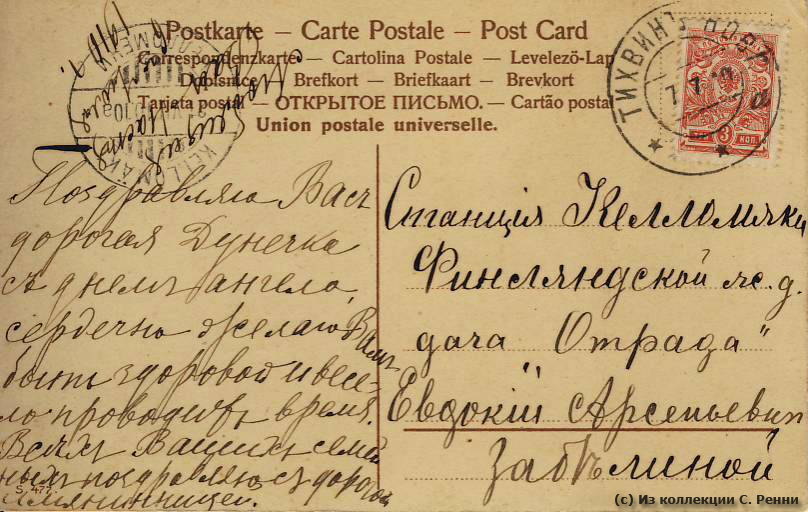 Postkarte – Carte Postale – Post Card
Correspondenzkarte – Cartolina Postale – Levelező-Lap
Dopisnice Brefkort – Briefkaart – Brevkort
Tarjeta postal – ОТКРЫТОЕ ПИСЬМО. – Cartão postal
Union postale universelle.
ТИХВИНЪ НОВГ.
7
3 КОП.
KELLOMÄKI
Поздравляю Васъ
дорогая Дунечка
съ днемъ ангела,
сердечно желаю Вамъ
быть здоровой и весе-
ло проводить время.
Всехъ Вашихъ семей
ныхъ поздравляю съ дорогой
имянинницей.
S. 477.
Станція Келломяки
Финляндской ж. д.
дача „Отрада"
Евдокіи Арсеньевнѣ
Забѣлиной
(c) Из коллекции С. Ренни